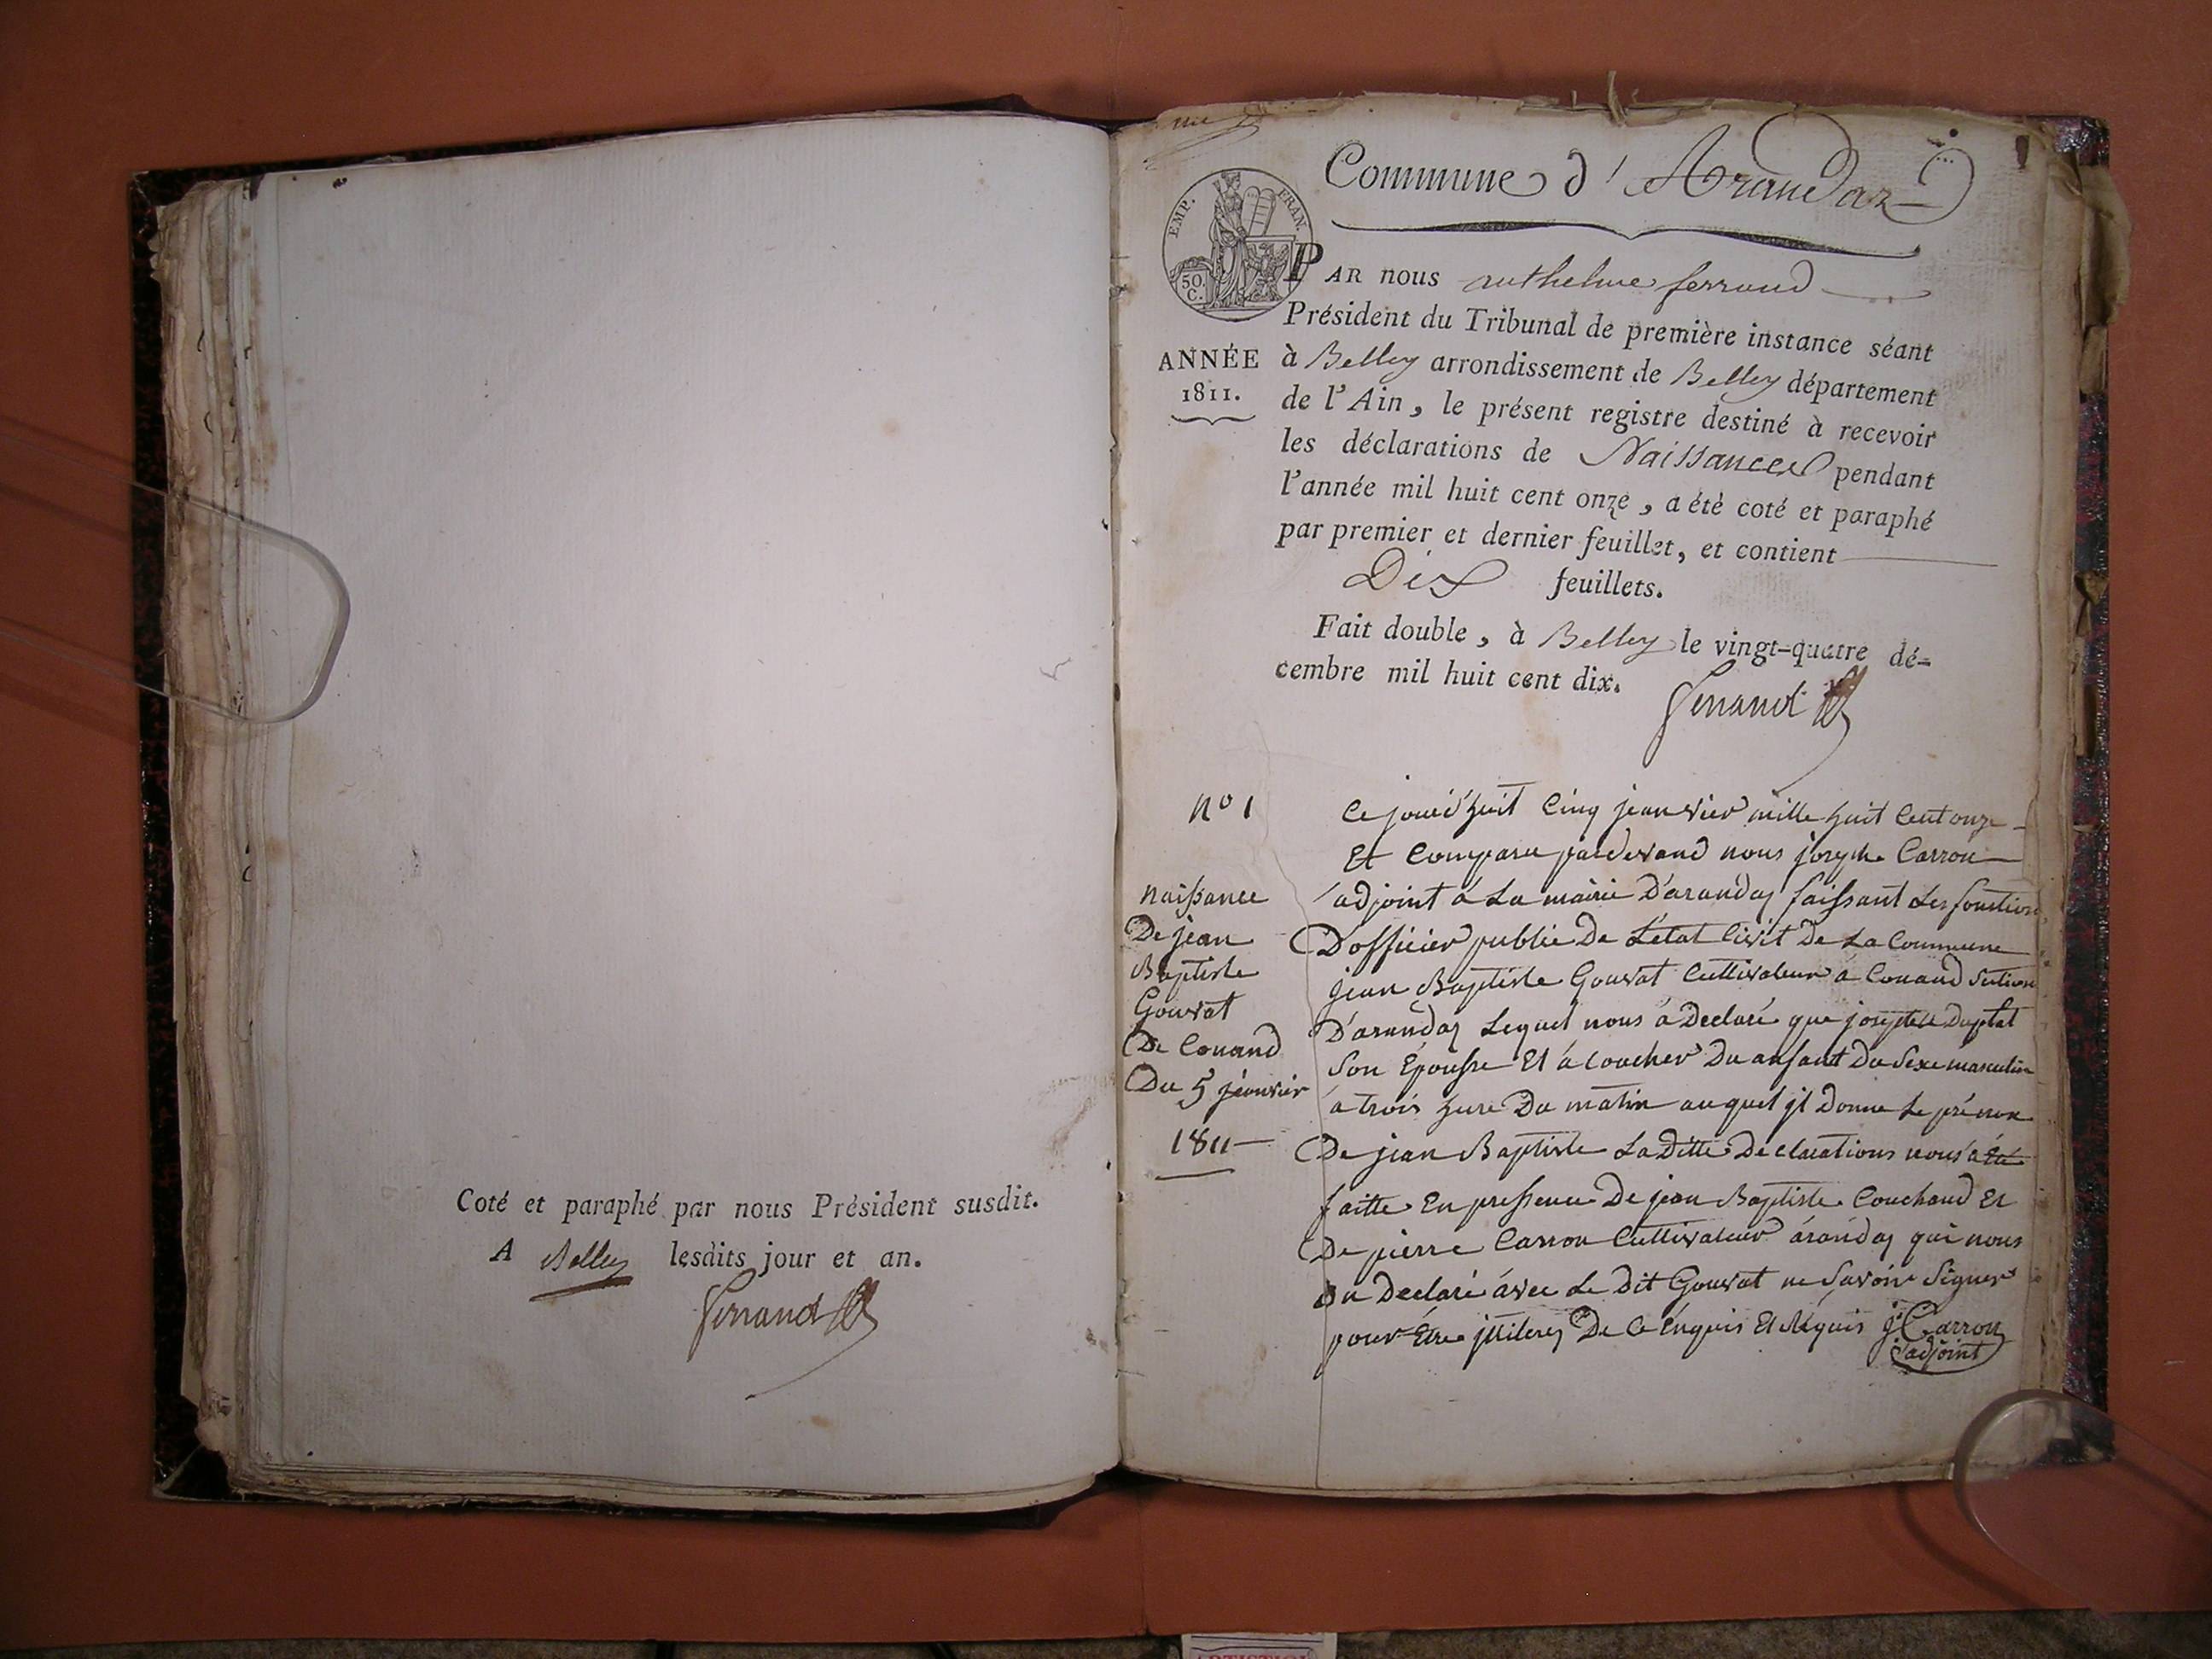 Coté et paraphé par nous Président susdit.
A Belley lesdits jour et an.
Ferrand
Commune d'Arandaz
EMP. FRAN.
50.
C.
PAR nous anthelme ferrand
Président du Tribunal de première instance séant
ANNÉE
1811.
à Belley arrondissement de Belley département
de l'Ain, le présent registre destiné à recevoir
les déclarations de Naissances pendant
l'année mil huit cent onze, a été coté et paraphé
par premier et dernier feuillet, et contient
Dix feuillets.
Fait double, à Belley le vingt-quatre dé-
cembre mil huit cent dix.
Ferrand
n° 1
naissance
De jean
Baptiste
Gouvat
De Conand
Du 5 jeanvier
1811
Ce jourd'huit Cinq jeanvier mille huit Cent onze
Et Comparu pardevand nous joseph Carron
adjoint à La mairie D'arandas faissant Les fonctions
D'officier public De L'état Civil De La Commune
jean Baptiste Gouvat Cultivateur à Conand Section
D'arandas Lequel nous à Declaré que
Son Epousse Et acoucher Du anfant Du Sexe masculin
à trois hure Du matin auquel jl Donne Le prénom
De jean Baptiste La Ditte Declarations nous a Eté
faitte En pressence De jean Baptiste Couchand Et
De pierre Carron Cultivateur àrandas qui nous
on Declaré avec Le Dit Gouvat ne Savoir Signer
pour Etre jlliterez De Ce Enquis Et Requis j Carron
adjoint